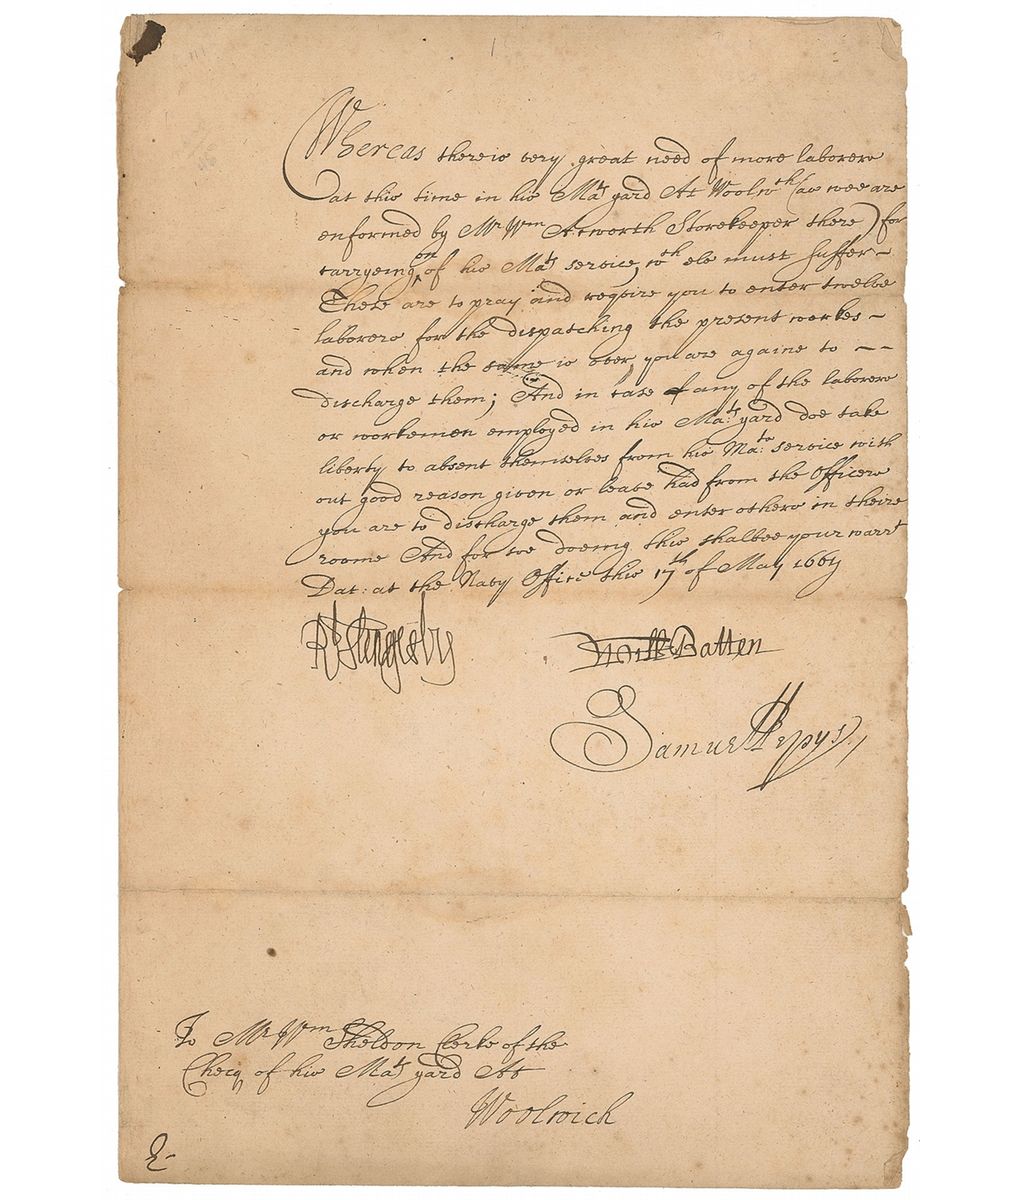 Whereas there is very great need of more laborers
at this time in his Mats yard At Woolwth (as wee are
enformed by Mr Wm Acworth Storekeeper there) for
carryeing on of his Mats service, wch els must suffer –
These are to pray and require you to enter twelve
laborers for the dispatching the present workes –
and when the same is over, you are againe to – –
discharge them; And in case of any of the laborers
or workemen employed in his Mats yard doe take
liberty to absent themselves from his Mats: service with
out good reason given or leave had from the Officers
you are to discharge them and enter others in theire
roome And for soe doeing this shalbee your warrt
Dat: at the Navy Office this 17th of May 1661
R Slingesby
Will Batten
Samuel Pepys
To Mr Wm Sheldon Clerke of the
Checq of his Mats yard At
Woolwich